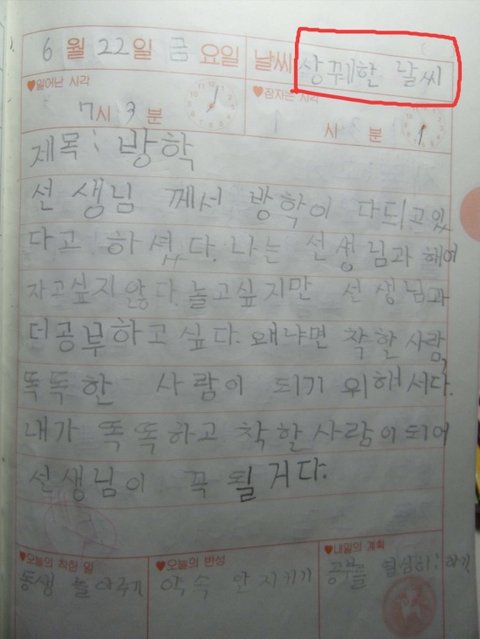 6 월 22 일 금 요일 날씨 상쾌한 날씨
♥일어난 시각 ♥잠자는 시각
7시 3분 시 분
제목 : 방학
선생님 께서 방학이 다 되고 있
다고 하셨다. 나는 선생님과 헤어
지고 싶지 않다. 놀고 싶지만 선생님과
더 공부하고 싶다. 왜냐면 착할 사람
똑똑한 사람이 되기 위해서다.
내가 똑똑하고 착할 사람이 되어
선생님이 꼭 될 거다.
♥오늘의 착한 일 ♥오늘의 반성 ♥내일의 계획
동생 놀아주기 약속 안 지키기 공부를 열심히 하기